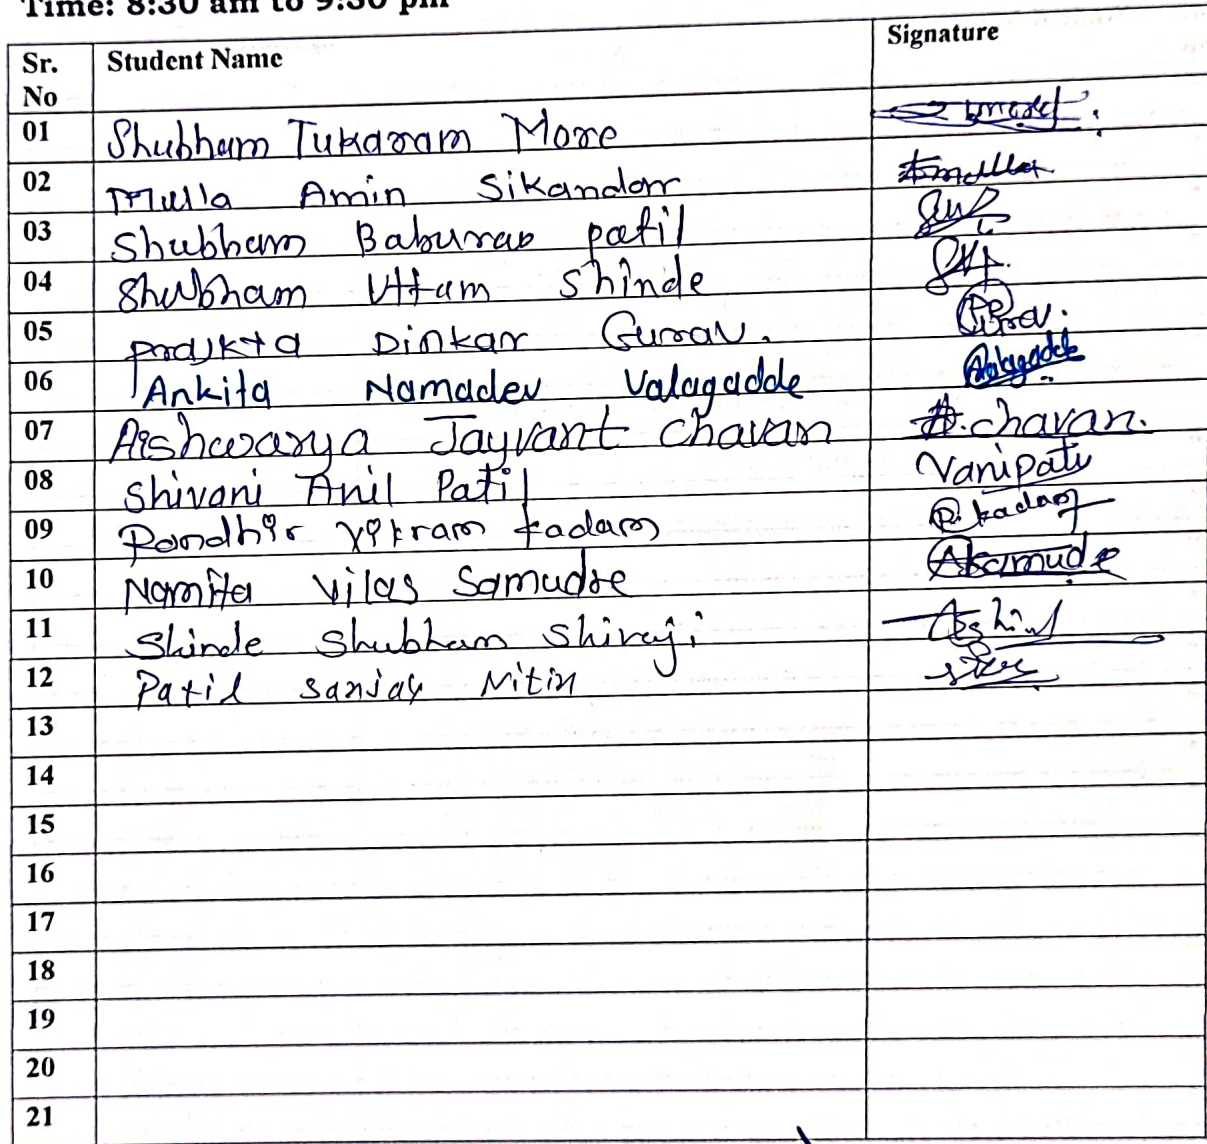 Time: 8:30 am to 9:30 pm
Sr. No Student Name Signature
01 Shubham Tukaram More
02 Mulla Amin Sikandar
03 Shubham Baburao patil
04 Shubham Uttam Shinde
05 prajkta Dinkar Gurav.
06 Ankita Namadev Valagadde Aalagadde
07 Aishwarya Jayvant Chavan A.chavan.
08 Shivani Anil Patil Vanipati
09 Randhir Vikram kadam R.kadam
10 Namita Vilas Samudre
11 Shinde Shubham Shivaji
12 Patil Sanjay Nitin
13
14
15
16
17
18
19
20
21